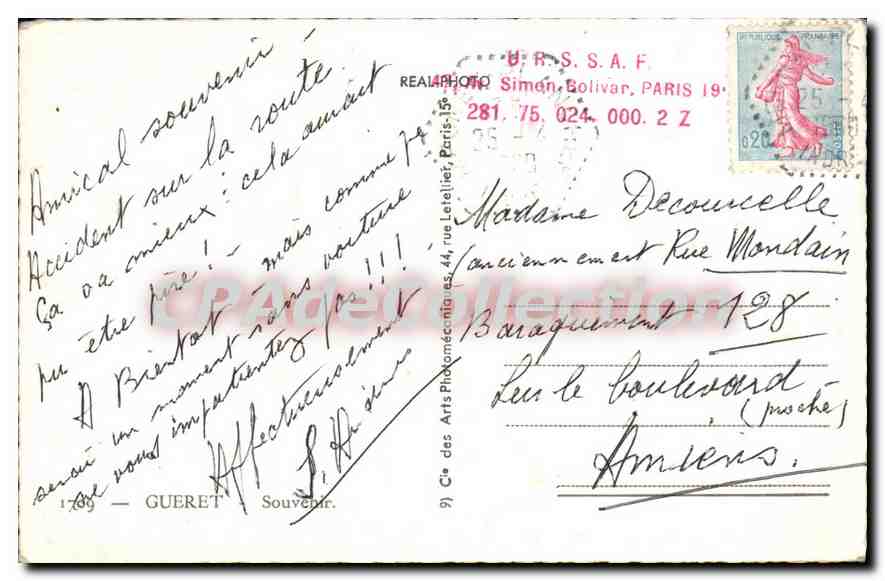 Amical souvenir -
Accident sur la route.
Ça va mieux : cela aurait
pu être pire ! -
A Bientôt - mais comme je
serai un moment sans voiture
ne vous impatientez pas !!! -
Affectueusement
1709 — GUERET Souvenir.
9) Cie des Arts Photomécaniques, 44, rue Letellier, Paris-15e
REAL-PHOTO
U. R. S. S. A. F.
Simon Bolivar, PARIS 19
281. 75. 024. 000. 2 Z
REPUBLIQUE FRANÇAISE
0,20
25 -4
25 -4
Madame Decourcelle
(anciennement Rue Mondain
Baraquement 128
sur le boulevard
(proche)
Amiens.
CPAdeCollection